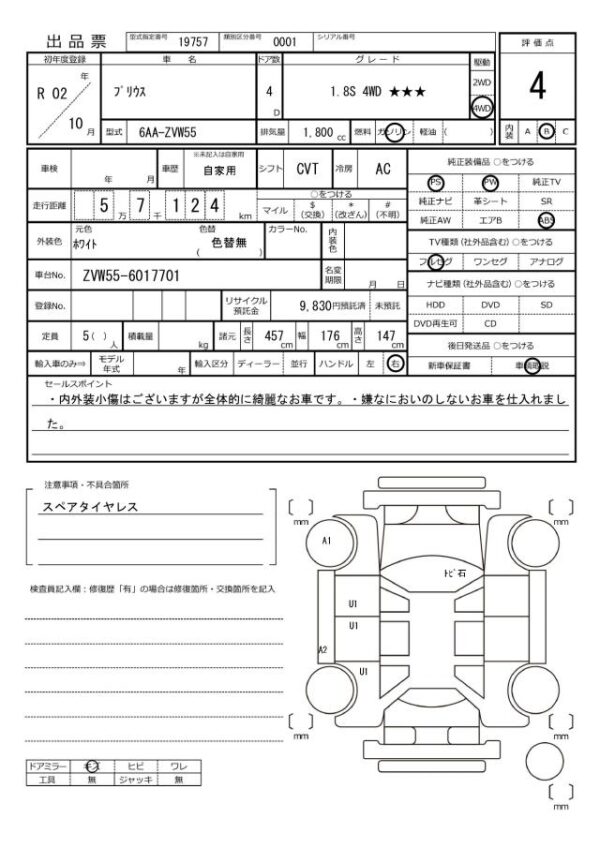 出品票 型式指定番号 19757 類別区分番号 0001 シリアル番号
初年度登録 車名 ドア数 グレード 駆動 評価点
R 02 年 プリウス 4 D 1.8S 4WD ★★★ 2WD 4WD 4
10 月 型式 6AA-ZVW55 排気量 1,800 cc 燃料 ガソリン 軽油 ( ) 内装 A B C
車検 年 月 車歴 ※未記入は自家用 自家用 シフト CVT 冷房 AC 純正装備品 ○をつける
PS PW 純正TV
走行距離 5 万 7 千 1 2 4 km ○をつける
マイル $ (交換) * (改ざん) # (不明)
純正ナビ 革シート SR
純正AW エアB ABS
外装色 元色 ホワイト 色替 色替無 ( ) カラーNo. 内装色
TV種類 (社外品含む) ○をつける
フルセグ ワンセグ アナログ
車台No. ZVW55-6017701 名変期限 月 日
ナビ種類 (社外品含む) ○をつける
登録No. リサイクル預託金 9,830円預託済 未預託
HDD DVD SD
DVD再生可 CD
定員 5 ( ) 人 積載量 kg 諸元 長さ 457 cm 幅 176 cm 高さ 147 cm
後日発送品 ○をつける
輸入車のみ⇒ モデル年式 年 輸入区分 ディーラー 並行 ハンドル 左 右
新車保証書 車輌取説
セールスポイント
・内外装小傷はございますが全体的に綺麗なお車です。・嫌なにおいのしないお車を仕入れまし
た。
注意事項・不具合箇所
スペアタイヤレス
検査員記入欄：修復歴「有」の場合は修復箇所・交換箇所を記入
[ ] mm
[ ] mm
A1
トビ石
U1
U1
A2
U1
[ ] mm
[ ] mm
[ ] mm
ドアミラー キズ ヒビ ワレ
工具 無 ジャッキ 無